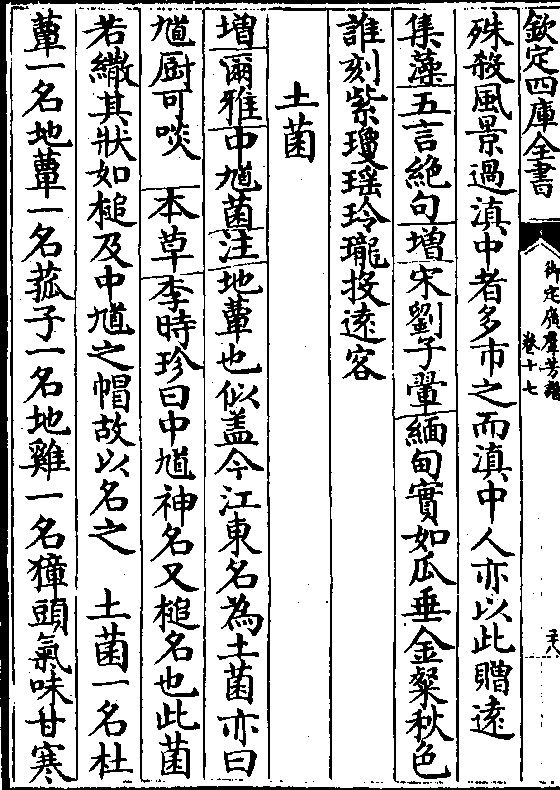 欽定四庫全書
御定廣羣芳譜
卷十七
殊殺風景過滇中者多市之而滇中人亦以此贈遠
集藻五言絶句增宋劉子翬緬甸實如瓜垂金粲秋色
誰刻紫瓊瑶玲瓏投遠客
土菌
增爾雅中馗菌注地蕈也似盖今江東名為土菌亦曰
馗厨可啖 本草李時珍曰中馗神名又槌名也此菌
若繖其狀如槌及中馗之帽故以名之 土菌一名杜
蕈一名地蕈一名菰子一名地雞一名獐頭氣味甘寒